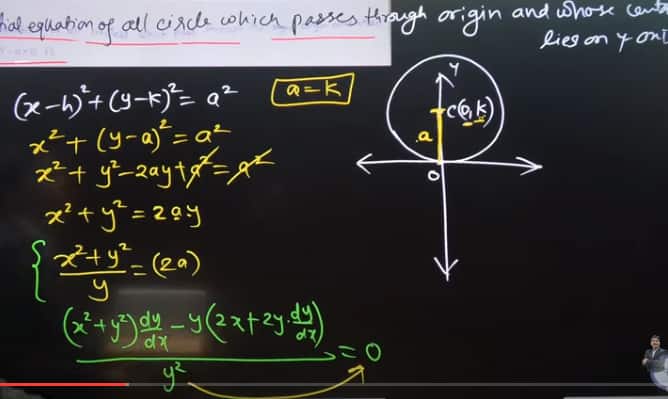 tial equation of all circle which passes through origin and whose cent
lies on y axi
(x-h)²+(y-k)²= a²
a=k
x²+(y-a)²=a²
x²+ y²-2ay+a²=a²
x²+y²=2a.y
{ (x²+y²)/y = (2a)
((x²+y²) dy/dx - y(2x+2y.dy/dx))/y² = 0
Y
C(0,k)
a
O